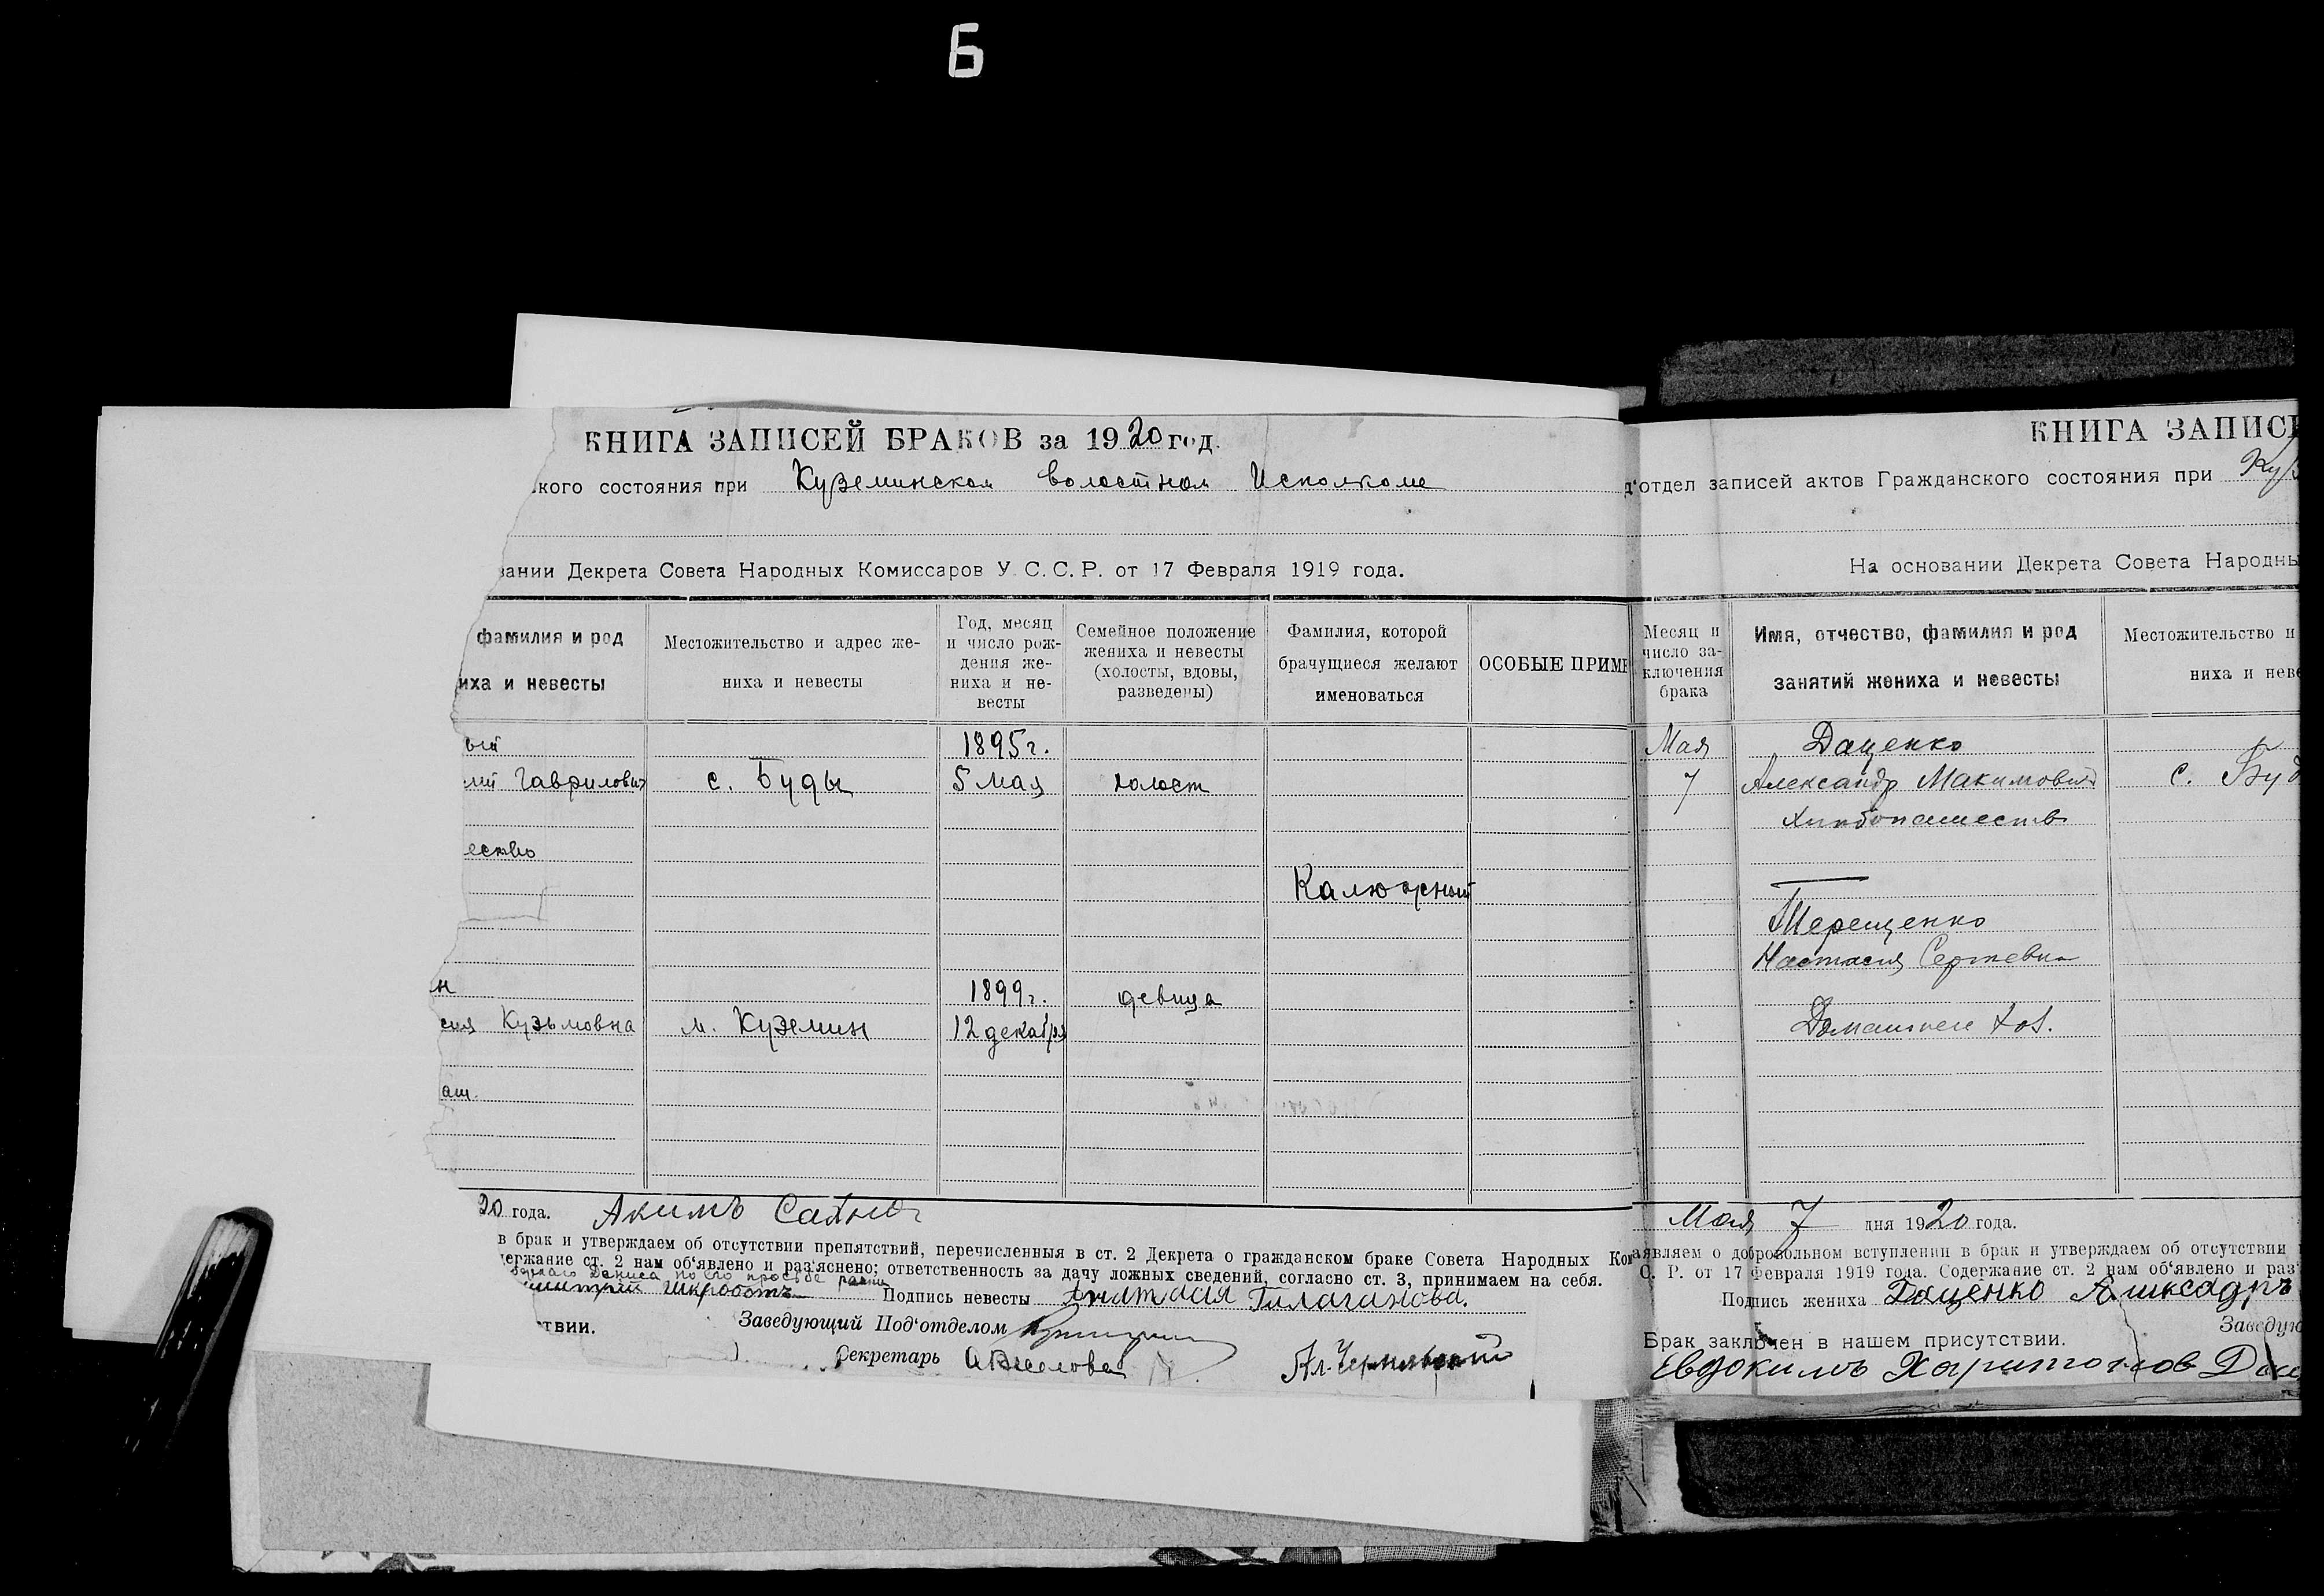 Б
КНИГА ЗАПИСЕЙ БРАКОВ за 1920 год.
кого состояния при Куземинском волостном Исполкоме
вании Декрета Совета Народных Комиссаров У.С.С.Р. от 17 Февраля 1919 года.
фамилия и род
иха и невесты
Местожительство и адрес же-
ниха и невесты
Год, месяц
и число рож-
дения же-
ниха и не-
весты
Семейное положение
жениха и невесты
(холосты, вдовы,
разведены)
Фамилия, которой
брачущиеся желают
именоваться
ОСОБЫЕ ПРИМ
ый 1895 г.
Гаврилович с. Буды 5 мая холост
ество
Калюжный
н 1899 г. девица
сия Кузьмовна м. Куземин 12 декабря
аш.
20 года. Акимъ
в брак и утверждаем об отсутствии препятствий, перечисленныя в ст. 2 Декрета о гражданском браке Совета Народных Ко
ержание ст. 2 нам об'явлено и раз'яснено; ответственность за дачу ложных сведений, согласно ст. 3, принимаем на себя.
Дениса по его просьбе
Шкроботъ Подпись невесты
ствии. Заведующий Под'отделом
Секретарь
КНИГА ЗАПИС
д'отдел записей актов Гражданского состояния при Куз
На основании Декрета Совета Народны
Месяц и
число за-
ключения
брака
Имя, отчество, фамилия и род
занятий жениха и невесты
Местожительство и
ниха и нев
Мая Даценко
7 Александр Макимович с. Буд
Хлебопашеств
Терещенко
Настасия Сергевна
Домашнее хоз.
Мая 7 дня 1920 года.
аявляем о добровольном вступлении в брак и утверждаем об отсутствии
С. Р. от 17 февраля 1919 года. Содержание ст. 2 нам об'явлено и раз
Подпись жениха Даценко
Заведую
Брак заключен в нашем присутствии.
Евдокимъ Харитонов